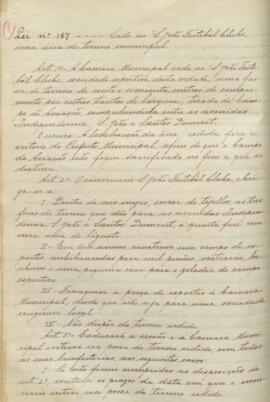 Lei nº 187 ---- Cede ao S. João Futebol Clube
uma área de terreno municipal.
Art. 1º A Camara Municipal cede ao S. João Fute-
bol Clube, sociedade esportiva desta cidade, uma fai-
xa de terreno de cento e cincoenta metros de compri-
mento por outros tantos de largura, tirada do Cam-
po de Aviação, compreendida entre as avenidas
Independencia, S. João e Santos Dumont.
§ unico A localização da área cedida fica a
criterio do Prefeito Municipal, afim de que o Campo
de Aviação não fique sacrificado no fim a que se
destina.
Art. 2º O cessionario S. João Futebol Clube, obri-
ga-se a:
I - Dentro de seis meses, cercar de tapellos as tres
faces do terreno que dão para as avenidas Indepen-
dencia, S. João e Santos Dumont, e quarta face com
uma vala de ligustro.
II - Em dois annos construir um campo de es-
portes
III - Franquear a praça de esportes á Camara
Municipal, desde que não seja para uma sociedade
congenere local.
IV - Não dispôr do terreno cedido.
Art. 3º Caducará a cessão e a Camara Mu-
nicipal entrará na posse do terreno cedido, com todas
as suas bemfeitorias, nos seguintes casos:
I - Se não forem cumpridas as disposições do
art. 2º, contados os prazos da data em que o cessio-
nario entrar na posse do terreno cedido.